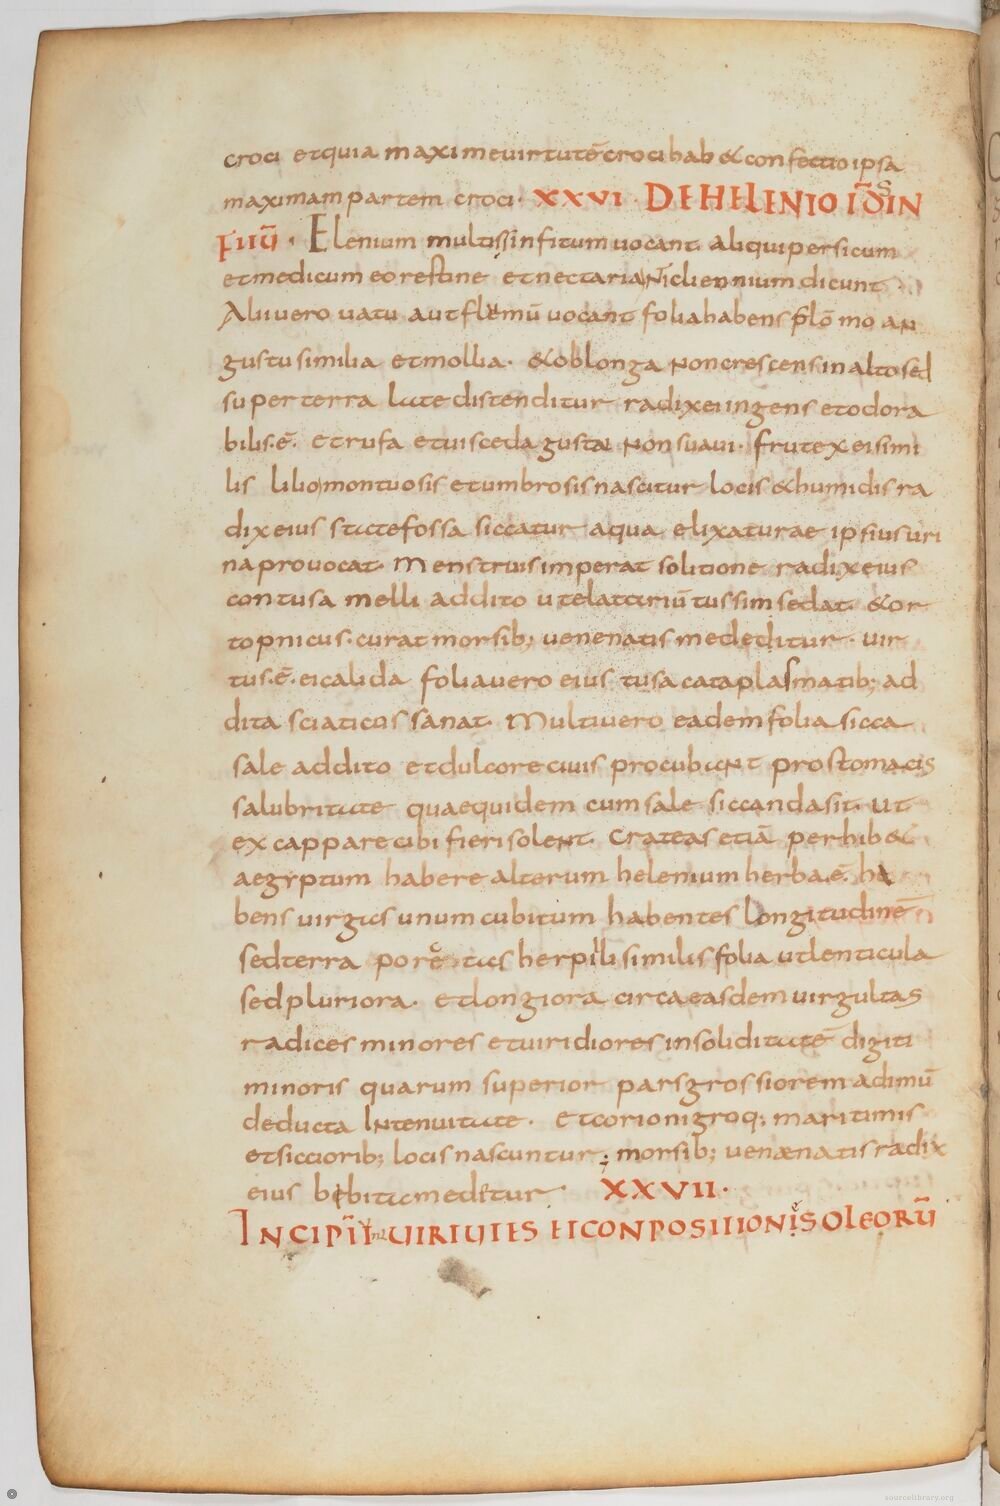 croci et quia maxime uirtutē croci hab& confectio ipsa
maximam partem croci. XXVI. DE HELENIO ID̄S IN
FITŪ. Elenium multis infitum uocant aliqui persicum
et medicum eo restine et nectarian cliennium dicunt
Alii uero uatu aut flemū uocant folia habens plō mo an
gustu similia et mollia. &oblonga non crescens in alto sed
super terra late distenditur radix ei ingens et odora
bilis.ē. et rufa et uisceda gustu non suaui. frutex ei simi
lis lilio montuosis et umbrosis nascitur locis &humidis ra
dix eius state fossa siccatur aqua elixaturae ipsius uri
na prouocat. Menstruis imperat solitione radix eius
contusa melli addito ut elattariū tussim sedat. &or
topnicus. curat morsib; uenenatis mededitur. uir
tus.ē. ei calida folia uero eius tusa cataplasmatib; ad
dita sciaticos sanat. Multi uero eadem folia sicca
sale addito et dulcore cuius procubunt pro stomacis
salubritate quae quidem cum sale siccanda sit. Ut
ex cappare cibi fieri solent. Crateas etiā perhib&
aegyptum habere alterum helenium herba.ē. ha
bens uirgas unum cubitum habentes longitudinē
sed terra pore tas herpilli similis folia ut lenticula
sed pluriora. et longiora circa easdem uirgultas
radices minores et uiridiores in soliditatē digiti
minoris quarum superior pars grossiorem adimū
deducta in tenuitate. et corio nigroq; maritimis
et sicciorib; locis nascuntur; morsib; uenænatis radix
eius bebita medetur XXVII.
INCIPIT UIRTUTES ET CONPOSITIONIS OLEORŪ
sourcelibrary.org